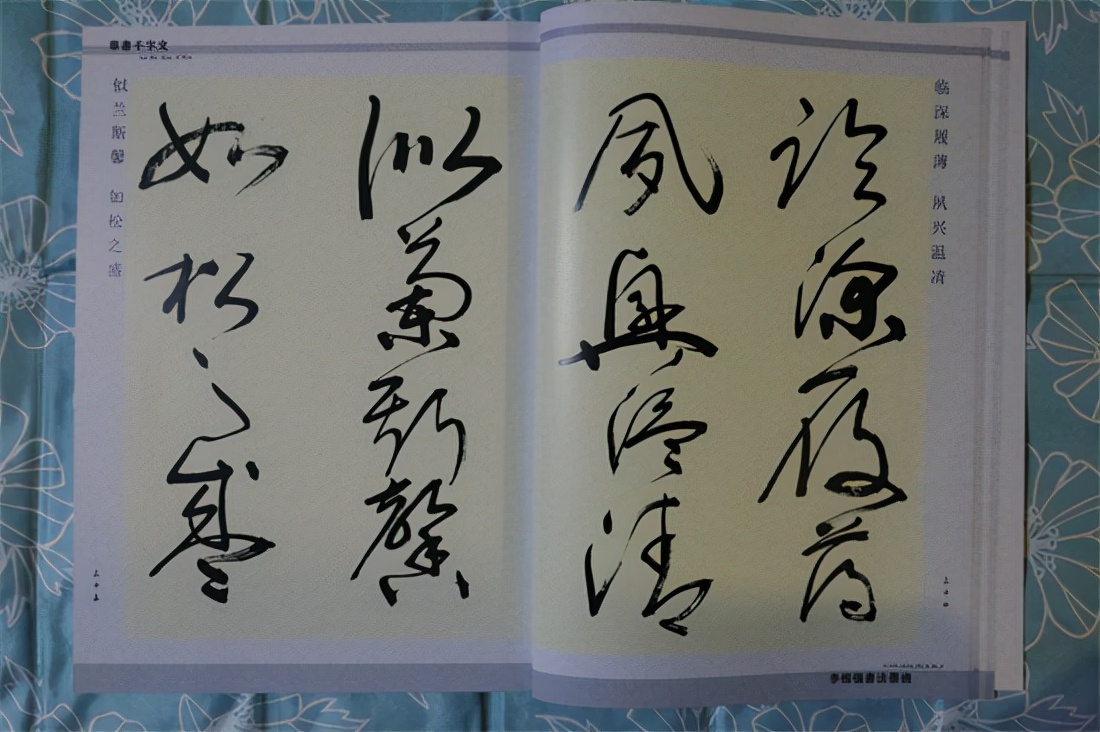 草書千字文
临深履薄 夙兴温清
臨深履薄
夙興温清
似蘭斯馨
如松之盛
似兰斯馨 如松之盛